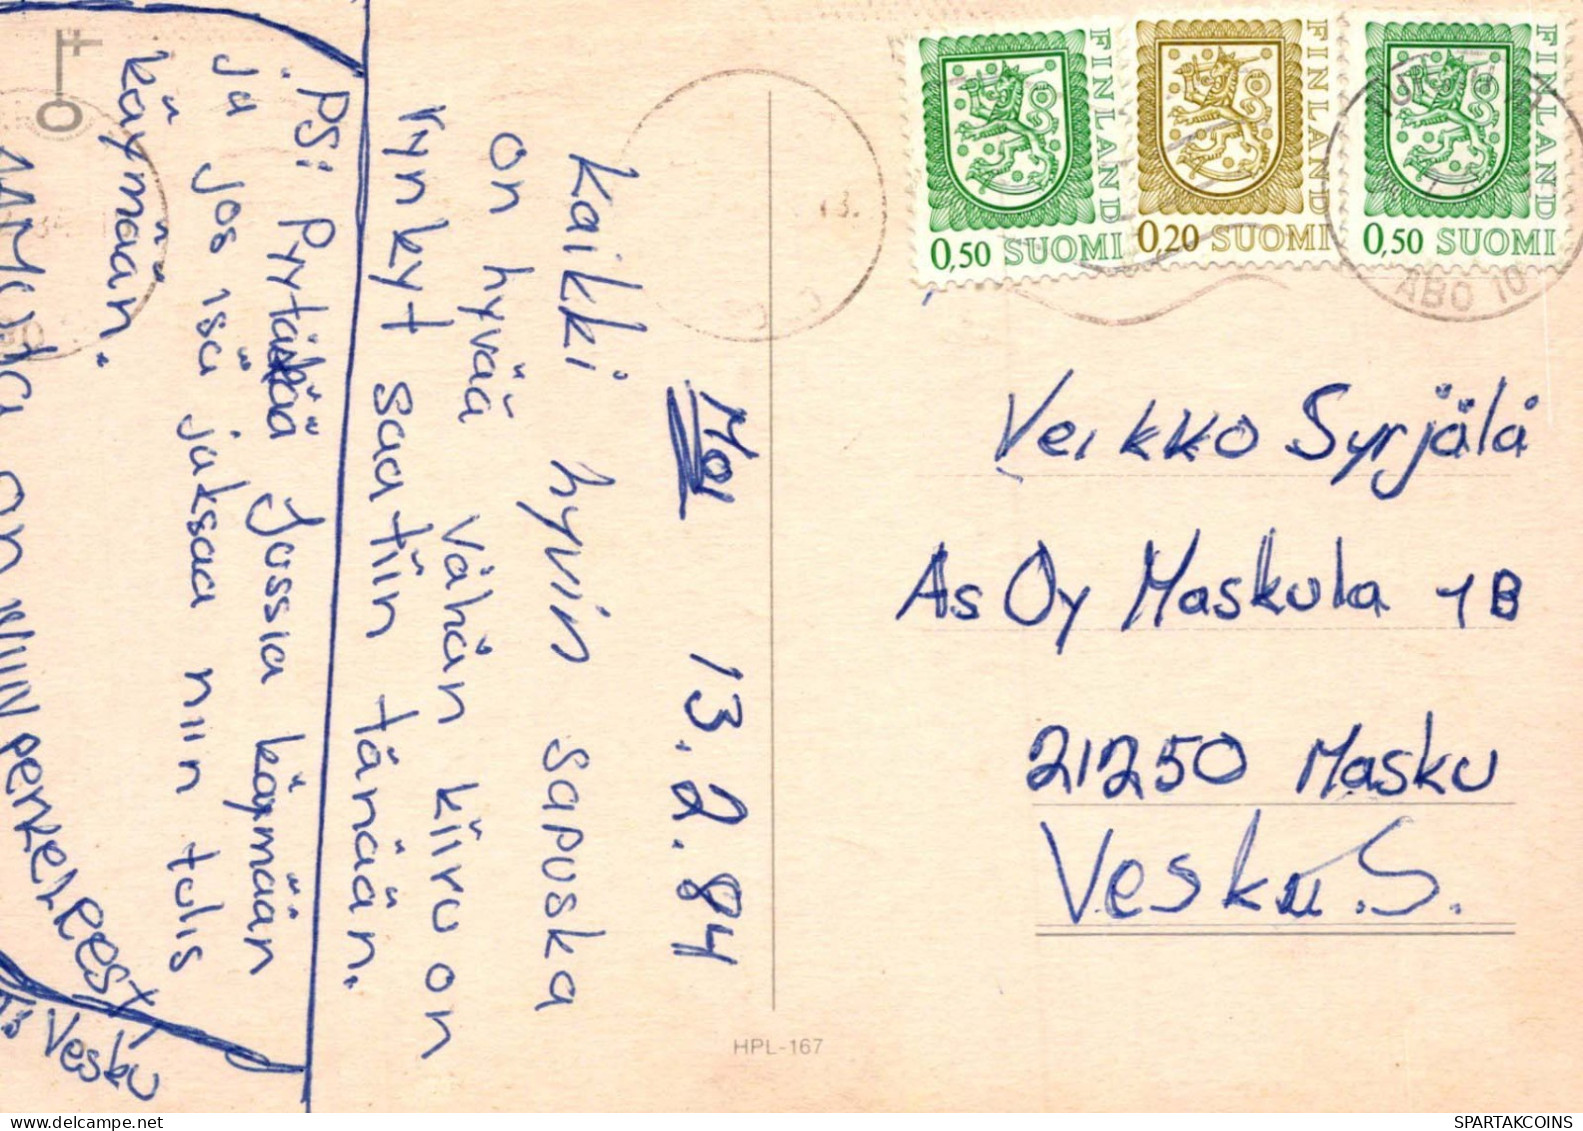 Moi 13.2.84
Kaikki hyvin sapuska
on hyvää vähän kiiru on
rynkyt saatiin tänään.
PS: Pyytäkää Jussia käymään
ja jos isä jaksaa niin tulis
käymään.
on NIIN perkeleesti
Vesku
FINLAND
0,50 SUOMI
FINLAND
0,20 SUOMI
FINLAND
0,50 SUOMI
ÅBO 10
13.
Veikko Syrjälä
As Oy Maskula 1B
21250 Masku
Vesku.S.
HPL-167
SPARTAKCOINS